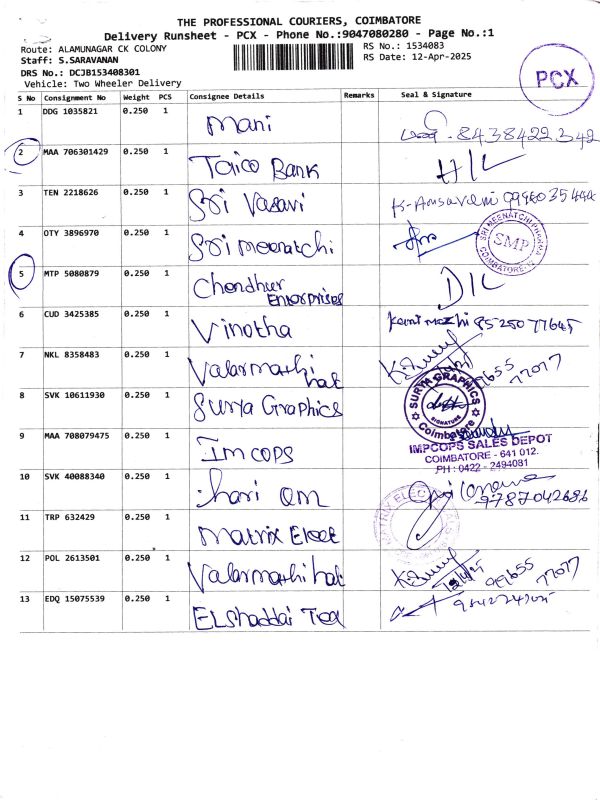 THE PROFESSIONAL COURIERS, COIMBATORE
Delivery Runsheet - PCX - Phone No.:9047080280 - Page No.:1
Route: ALAMUNAGAR CK COLONY
RS No.: 1534083
Staff: S.SARAVANAN
RS Date: 12-Apr-2025
DRS No.: DCJB153408301
Vehicle: Two Wheeler Delivery
PCX
S No Consignment No Weight PCS Consignee Details Remarks Seal & Signature
1 DDG 1035821 0.250 1 Mani 8438422342
2 MAA 706301429 0.250 1 Taico Bank H/L
3 TEN 2218626 0.250 1 Sri Vasavi
4 OTY 3896970 0.250 1 Sri meenatchi
SRI MEENATCHI PHARMA
SMP
COIMBATORE-12
5 MTP 5080879 0.250 1 Chendhur Enterprises D/L
6 CUD 3425385 0.250 1 Vinotha 8525077645
7 NKL 8358483 0.250 1 Valarmathi hat 99655 77077
8 SVK 10611930 0.250 1 Surya Graphics
SURYA GRAPHICS
SIGNATURE
Coimbatore
9 MAA 708079475 0.250 1 Imcops
IMPCOPS SALES DEPOT
COIMBATORE - 641 012.
PH : 0422 - 2494081
10 SVK 40088340 0.250 1 hari om 9787042686
11 TRP 632429 0.250 1 Matrix Elect
12 POL 2613501 0.250 1 Valarmathi hat 99655 77077
13 EDQ 15075539 0.250 1 Elshaddai Tea